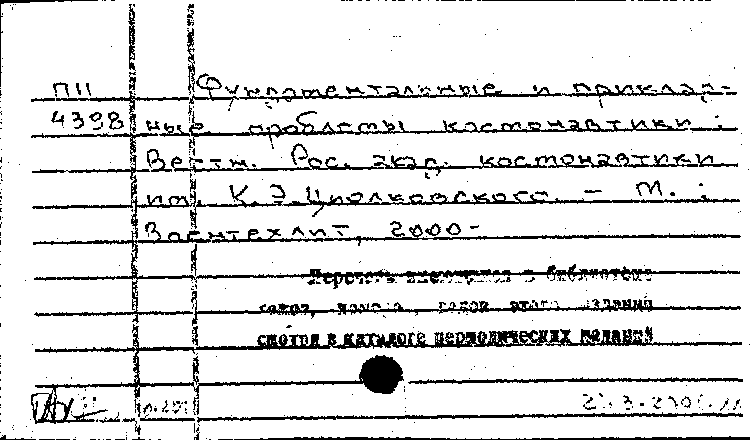 П11 Фундаментальные и приклад-
4398 ные проблемы космонавтики :
Вестн. Рос. акад. космонавтики
им. К.Э.Циолковского. – М. :
ЗАО Интехлит, 2000-
Перечень имеющихся в библиотеке
номеров, годов этого издания
смотри в каталоге периодических изданий